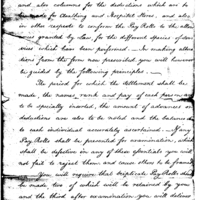 and also columns for the deductions which are to
be made for Cloathing and Hospital Stores, and also
in other respects to conform the Pay Rolls to the allow
ances granted by Law, for the different species of ser
vices which have been performed. In making altera
tions from the form now prescribed you will however
be guided by the following principles
The period for which the settlement shall be
made, the names, rank and pay of each person are
to be specially inserted, the amount of advances or
deductions are also to be noted and the balance due
to each individual accurately ascertained. If any
Pay Rolls shall be presented for examination, which
shall be defective in any of these essentials you will
not fail to reject them and cause others to be framed
You will require that triplicate Pay Rolls shall
be made two of which will be retained by you
and the third after examination you will deliver